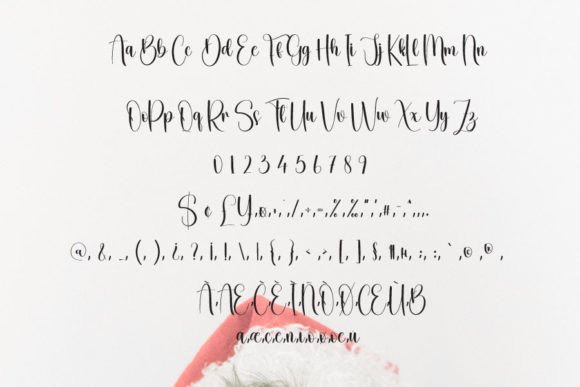 Aa Bb Cc Dd Ee Ff Gg Hh Ii Jj Kk Ll Mm Nn
Oo Pp Qq Rr Ss Tt Uu Vv Ww Xx Yy Zz
0 1 2 3 4 5 6 7 8 9
$ ¢ £ ¥
@, &, _, (, ), ¿, ?, ¡, !, \, |, {, }, <, >, [, ], §, ¶, µ, :, ;, `, ©, ®,
À,Æ,Ç,È,Ì,Ñ,Ò,Ø,Œ,Ù,ß